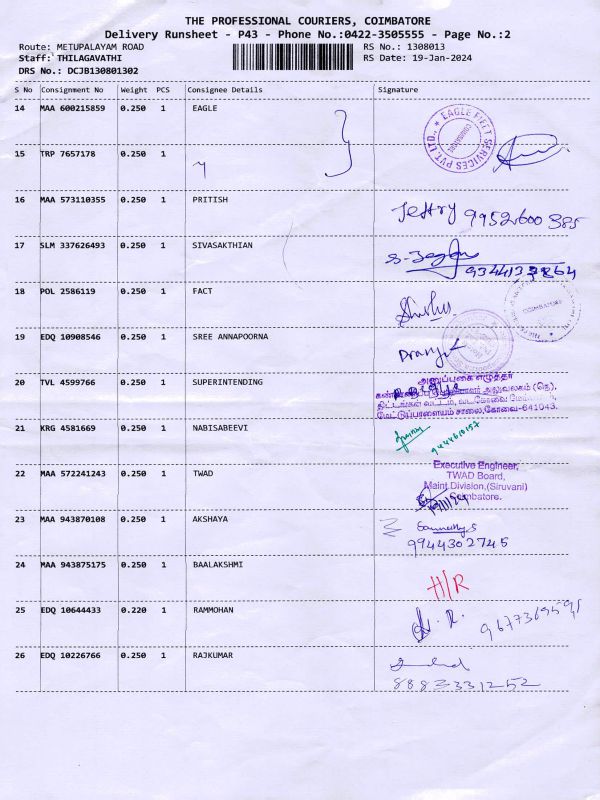 THE PROFESSIONAL COURIERS, COIMBATORE
Delivery Runsheet - P43 - Phone No.:0422-3505555 - Page No.:2
Route: METUPALAYAM ROAD RS No.: 1308013
Staff: THILAGAVATHI RS Date: 19-Jan-2024
DRS No.: DCJB130801302
S No Consignment No Weight PCS Consignee Details Signature
14 MAA 600215859 0.250 1 EAGLE
EAGLE FLEET SERVICES PVT.LTD.,
COIMBATORE
15 TRP 7657178 0.250 1
16 MAA 573110355 0.250 1 PRITISH
Jeffry 9952600385
17 SLM 337626493 0.250 1 SIVASAKTHIAN
18 POL 2586119 0.250 1 FACT
COIMBATORE
19 EDQ 10908546 0.250 1 SREE ANNAPOORNA
20 TVL 4599766 0.250 1 SUPERINTENDING
அனுப்புகை எழுத்தர்
அலுவலகம் (நெ),
திட்டங்கள் வட்டம், வடகோவை
மேட்டுப்பாளையம் சாலை,கோவை-641043.
21 KRG 4581669 0.250 1 NABISABEEVI
22 MAA 572241243 0.250 1 TWAD
Executive Engineer,
TWAD Board,
Maint.Division,(Siruvani)
Coimbatore.
23 MAA 943870108 0.250 1 AKSHAYA
9944302745
24 MAA 943875175 0.250 1 BAALAKSHMI
H/R
25 EDQ 10644433 0.220 1 RAMMOHAN
26 EDQ 10226766 0.250 1 RAJKUMAR
8883331252